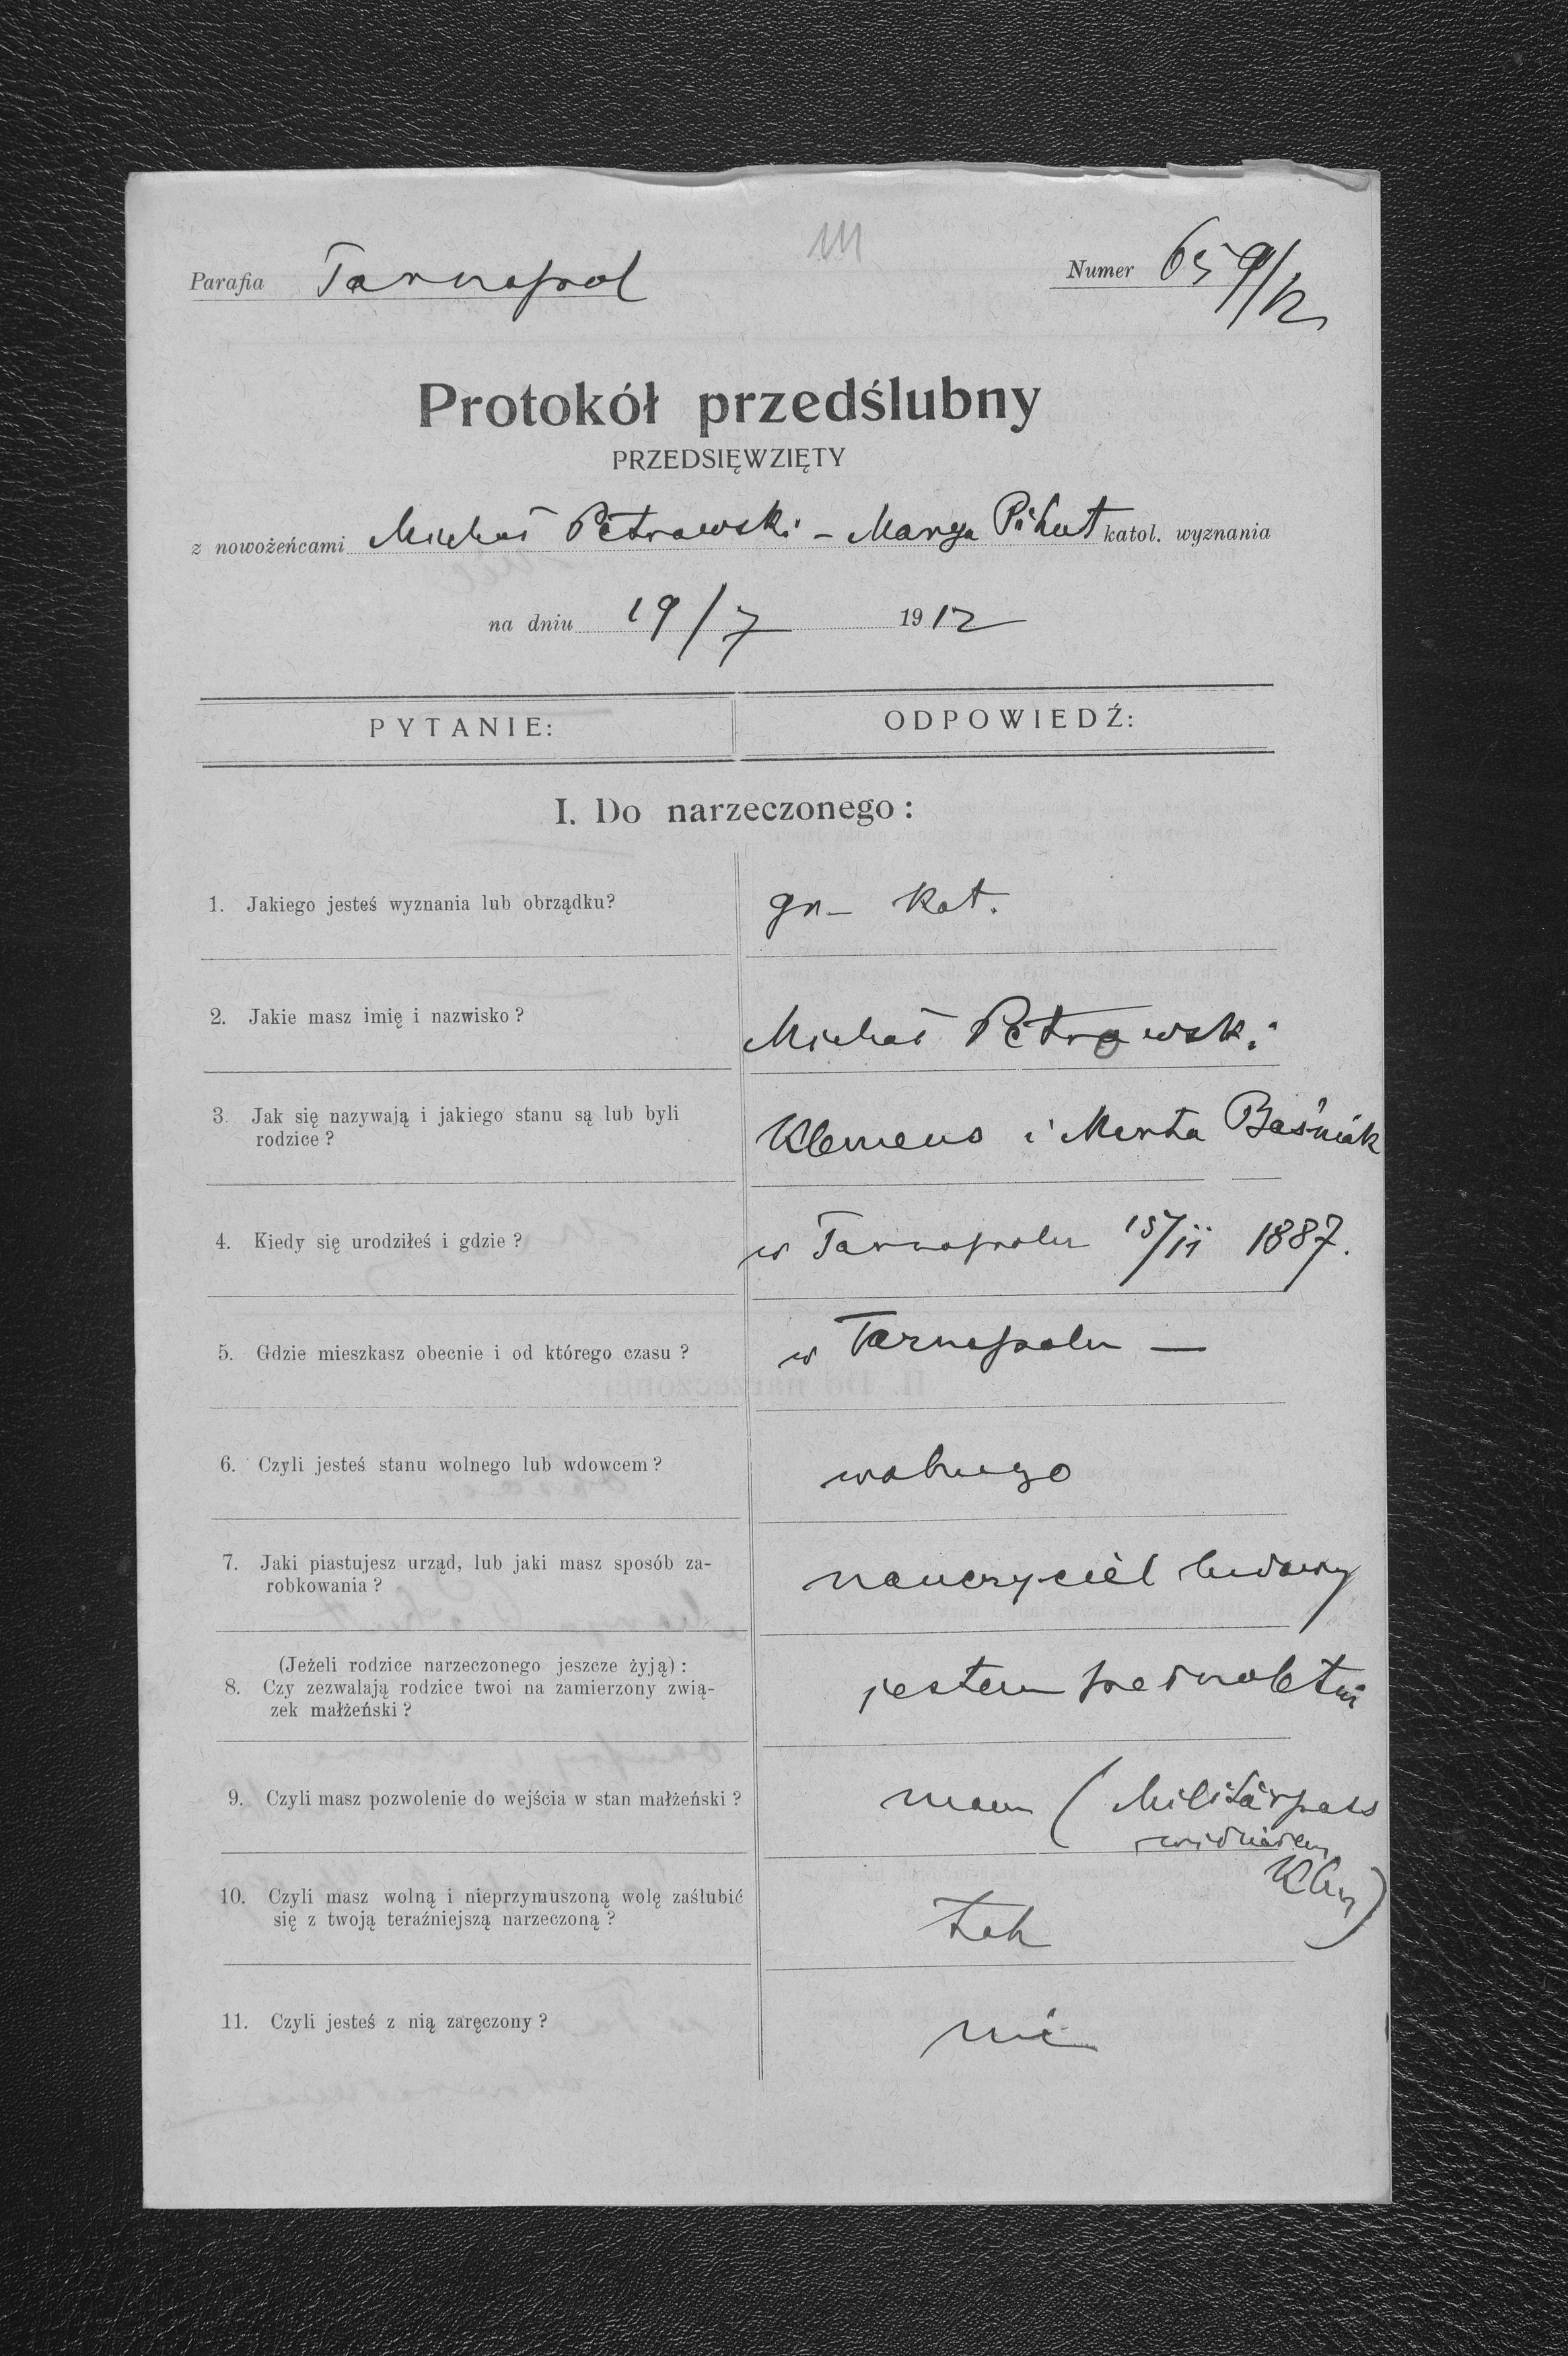 Parafia Tarnopol
Numer 659/12
Protokół przedślubny
PRZEDSIĘWZIĘTY
z nowożeńcami Michał Petrowski – Marya Pihut katol. wyznania
na dniu 19/7 1912
PYTANIE: ODPOWIEDŹ:
I. Do narzeczonego:
1. Jakiego jesteś wyznania lub obrządku? gr– kat.
2. Jakie masz imię i nazwisko? Michał Petrowski
3. Jak się nazywają i jakiego stanu są lub byli
rodzice? Klemens i Marta Baśniak
4. Kiedy się urodziłeś i gdzie? w Tarnopolu 15/11 1887.
5. Gdzie mieszkasz obecnie i od którego czasu? w Tarnopolu —
6. Czyli jesteś stanu wolnego lub wdowcem? wolnego
7. Jaki piastujesz urząd, lub jaki masz sposób za-
robkowania? nauczyciel ludowy
(Jeżeli rodzice narzeczonego jeszcze żyją):
8. Czy zezwalają rodzice twoi na zamierzony zwią-
zek małżeński? jestem pełnoletni
9. Czyli masz pozwolenie do wejścia w stan małżeński? mam (Militärpass
widziałem
10. Czyli masz wolną i nieprzymuszoną wolę zaślubić
się z twoją teraźniejszą narzeczoną? tak
11. Czyli jesteś z nią zaręczony? nie